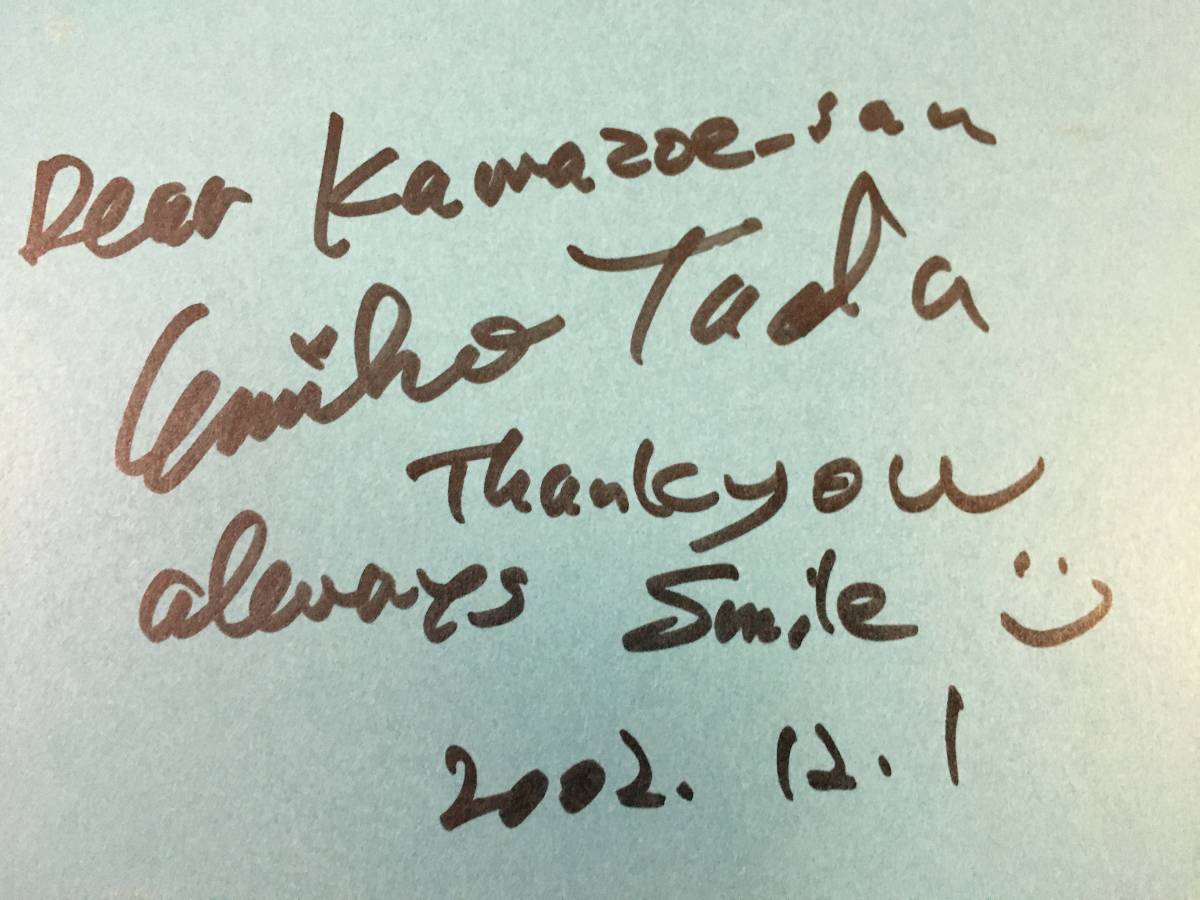 Dear Kamazoe-san
Emiko Tada
Thank you
always Smile
2002. 12. 1